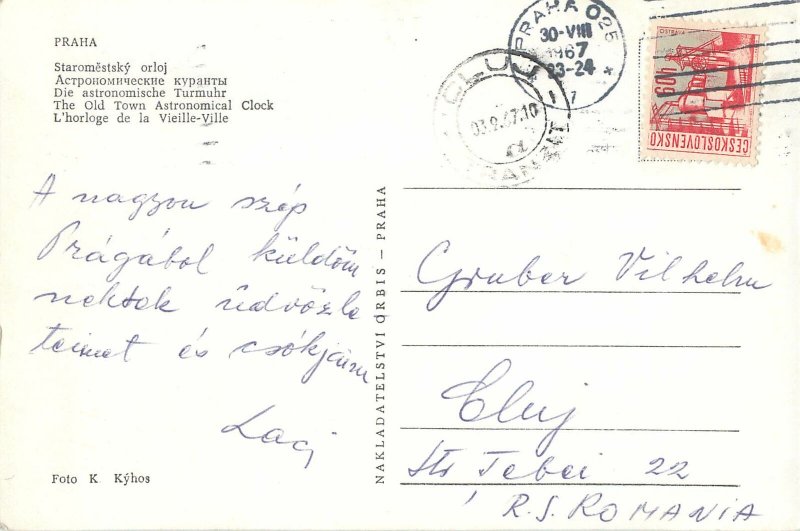 PRAHA
Staroměstský orloj
Астрономические куранты
Die astronomische Turmuhr
The Old Town Astronomical Clock
L'horloge de la Vieille-Ville
A nagyon szép
Prágából küldöm
nektek üdvözle
teimet és csókjaim
Laci
Foto K Kýhos
NAKLADATELSTVÍ ORBIS — PRAHA
PRAHA 025
30-VIII
1967
23-24
CLUJ
03.9.67.10
TRANZIT
OSTRAVA
60h
ČESKOSLOVENSKO
Gruber Vilhelm
Cluj
Str Tebei 22
R.S. ROMANIA